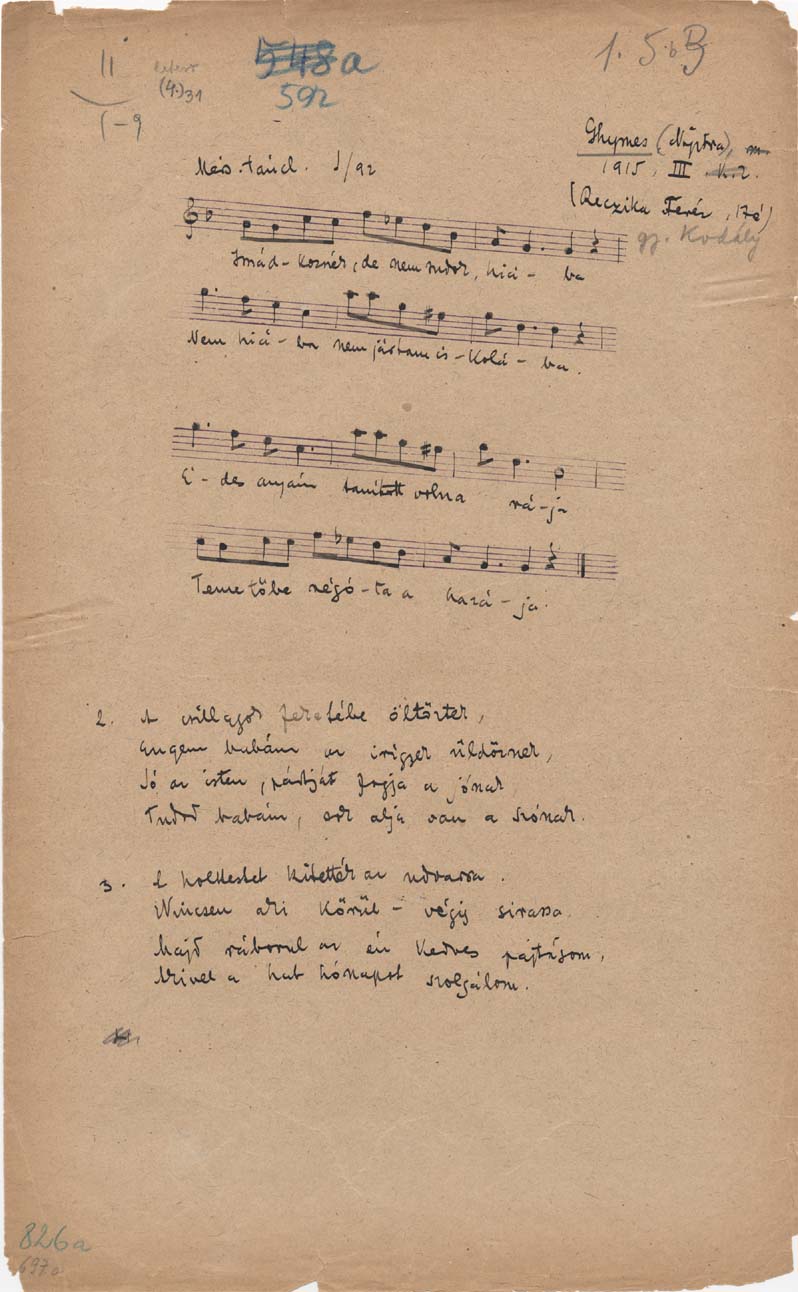 11
(4.) 31
1-9
548a
592
1. 5. b B
Ghymes (Nyitra),
1915. III.
(Reczika Teréz, 17é)
gy. Kodály
Más. táncl. ♩/92
Imád-koznék, de nem tudok, hiá - ba
Nem hiá - ba nem jártam is - kolá - ba.
É - des anyám tanitott volna rá - ja
Temetőbe régó - ta a hazá - ja.
2. A csillagok feketébe öltöztek,
Engem babám az irigyek üldöznek,
Jó az isten, pártját fogja a jónak
Tudod babám, sok alja van a szónak.
3. A holttestet kitették az udvarra.
Nincsen aki körül - végig sirassa
Majd ráborul az én kedves pajtásom,
Kivel a hat hónapot szolgálom.
826a
697a